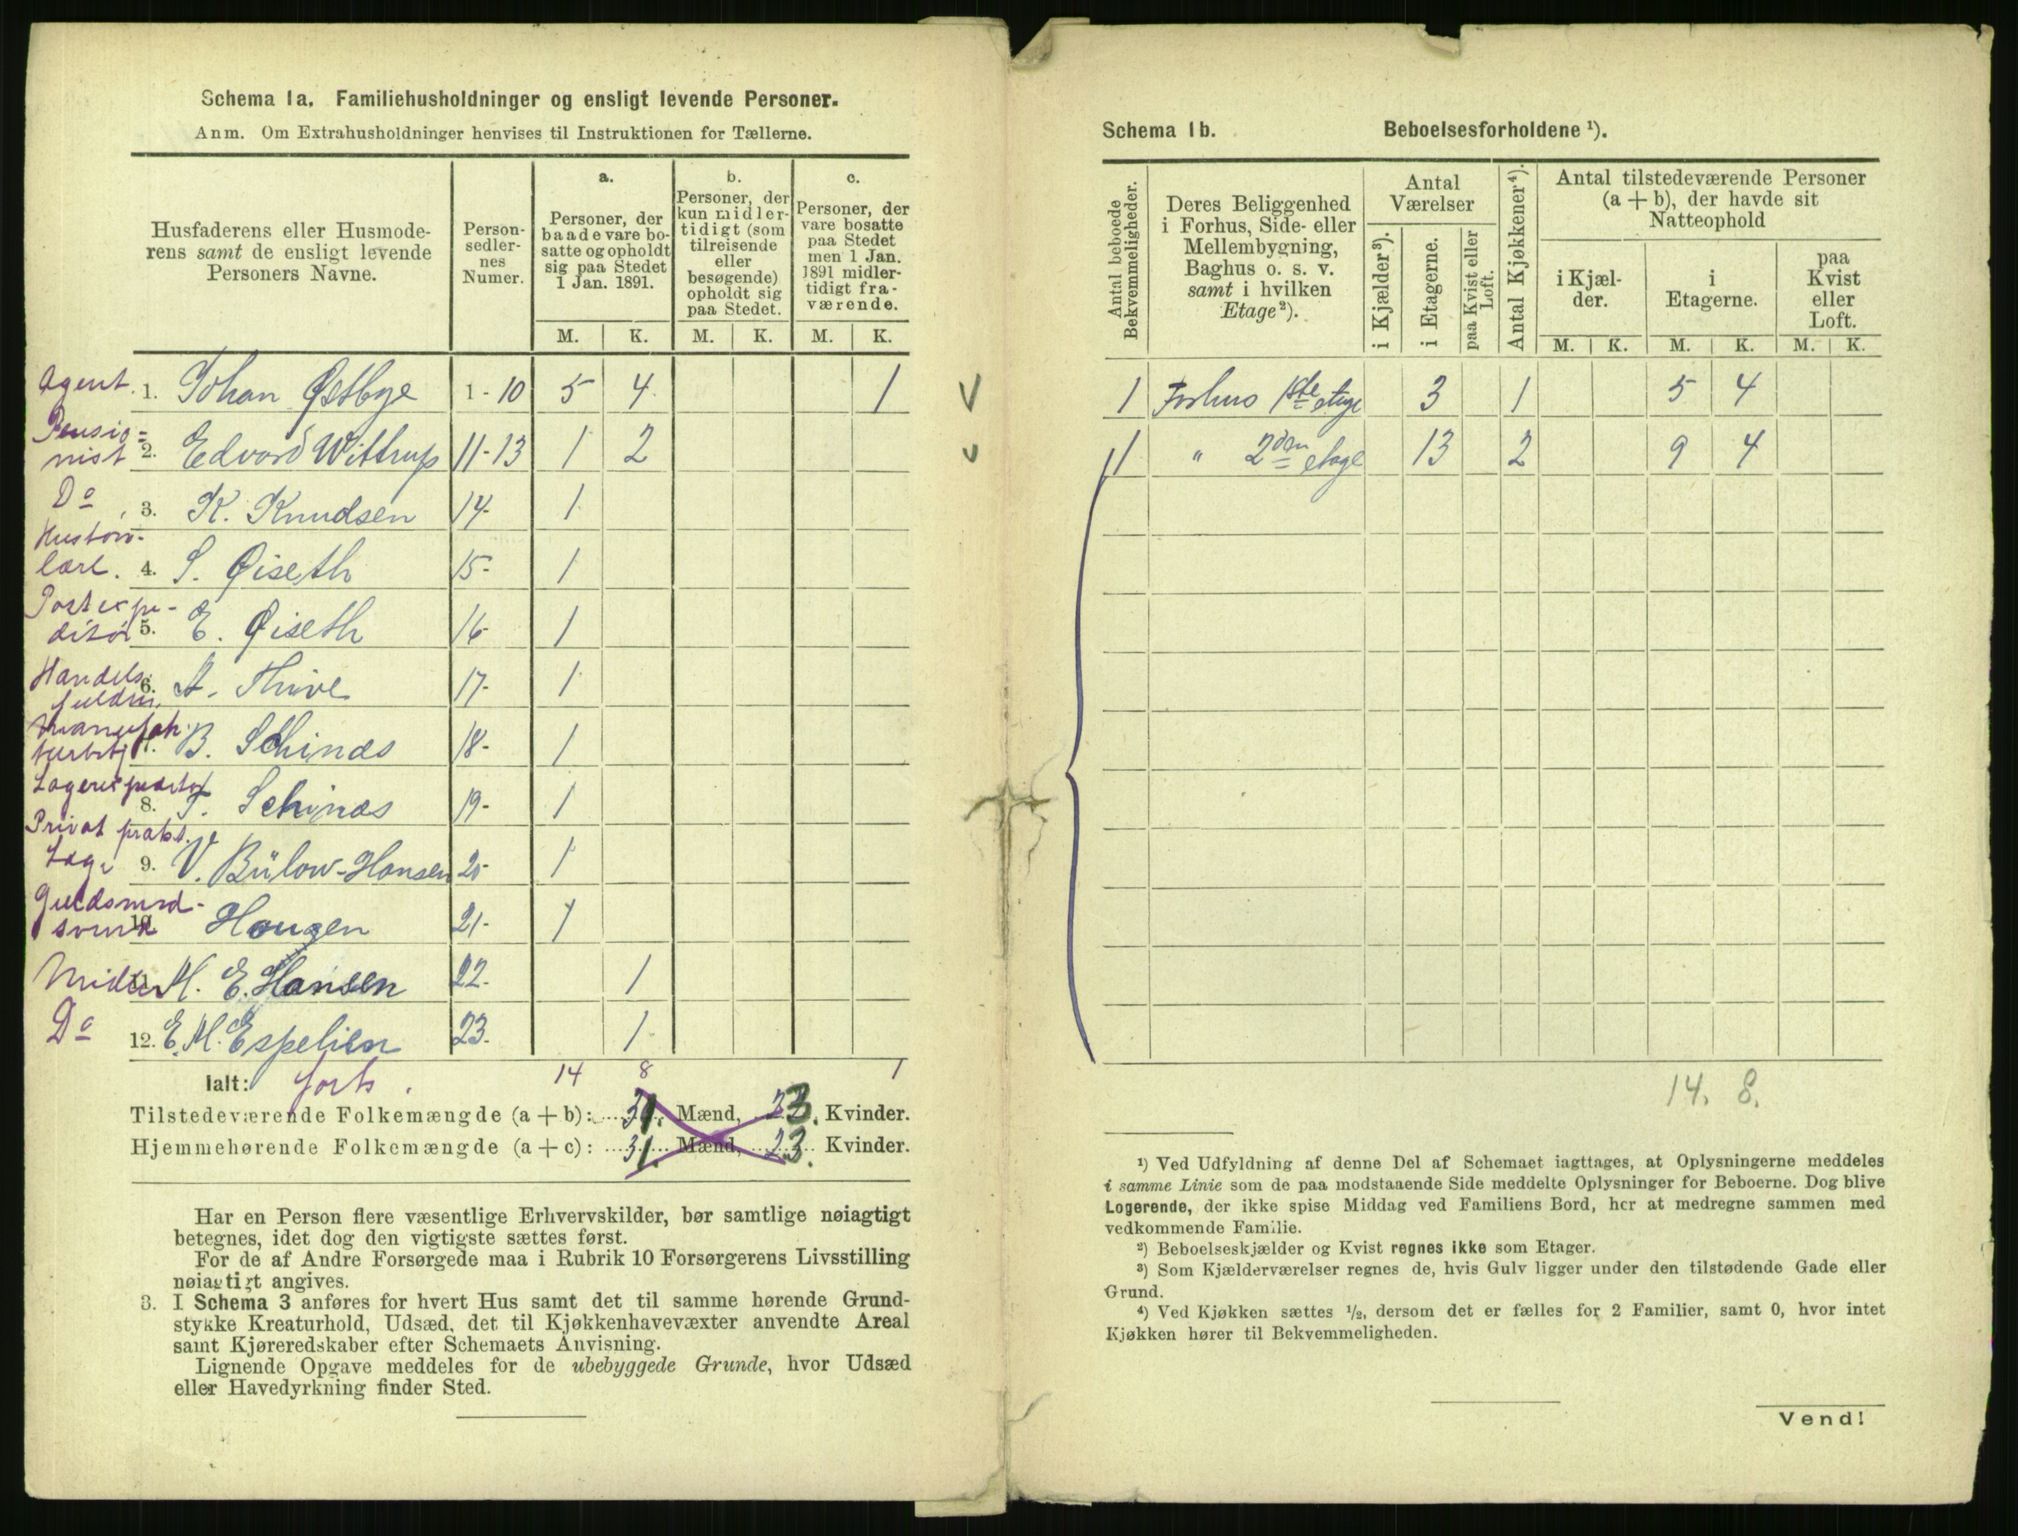 Schema 1a. Familiehusholdninger og ensligt levende Personer.
Anm. Om Extrahusholdninger henvises til Instruktionen for Tællerne.
Husfaderens eller Husmode-
rens samt de ensligt levende
Personers Navne.
Person-
sedler-
nes
Numer.
a.
Personer, der
baade vare bo-
satte og opholdt
sig paa Stedet
1 Jan. 1891.
b.
Personer, der
kun midler-
tidigt (som
tilreisende
eller
besøgende)
opholdt sig
paa Stedet.
c.
Personer, der
vare bosatte
paa Stedet
men 1 Jan.
1891 midler-
tidigt fra-
værende.
M. K. M. K. M. K.
Agent. 1. Johan Østbye 1-10 5 4 1
Pensio-
nist 2. Edvard Wittrup 11-13 1 2
Do 3. K. Knudsen 14- 1
4. S. Øiseth 15- 1
Postexpe-
ditør 5. E. Øiseth 16- 1
Handels
fuldm. 6. A. Thive 17- 1
B. Schinds 18- 1
8. T. Schinds 19- 1
Privat prakt.
Læge 9. V. Bülow-Hansen 20- 1
Guldsmed-
svend 10. Hougen 21- 1
11. M. E. Hansen 22- 1
Do 12. E. M. Espelien 23. 1
Ialt: forts. 14 8 1
Tilstedeværende Folkemængde (a + b): 31. Mænd, 23. Kvinder.
Hjemmehørende Folkemængde (a + c): 31. Mænd, 23. Kvinder.
Har en Person flere væsentlige Erhvervskilder, bør samtlige nøiagtigt
betegnes, idet dog den vigtigste sættes først.
For de af Andre Forsørgede maa i Rubrik 10 Forsørgerens Livsstilling
nøiagtigt angives.
3. I Schema 3 anføres for hvert Hus samt det til samme hørende Grund-
stykke Kreaturhold, Udsæd, det til Kjøkkenhavevæxter anvendte Areal
samt Kjøreredskaber efter Schemaets Anvisning.
Lignende Opgave meddeles for de ubebyggede Grunde, hvor Udsæd
eller Havedyrkning finder Sted.
Schema 1b. Beboelsesforholdene ¹).
Antal beboede
Bekvemmeligheder.
Deres Beliggenhed
i Forhus, Side- eller
Mellembygning,
Baghus o. s. v.
samt i hvilken
Etage ²).
Antal
Værelser
i Kjælder ³).
i Etagerne.
paa Kvist eller
Loft.
Antal Kjøkkener ⁴).
Antal tilstedeværende Personer
(a + b), der havde sit
Natteophold
i Kjæl-
der.
i
Etagerne.
paa
Kvist
eller
Loft.
M. K. M. K. M. K.
1 Forhus 1ste etage 3 1 5 4
1 " 2den etage 13 2 9 4
14. 8.
¹) Ved Udfyldning af denne Del af Schemaet iagttages, at Oplysningerne meddeles
i samme Linie som de paa modstaaende Side meddelte Oplysninger for Beboerne. Dog blive
Logerende, der ikke spise Middag ved Familiens Bord, her at medregne sammen med
vedkommende Familie.
²) Beboelseskjælder og Kvist regnes ikke som Etager.
³) Som Kjælderværelser regnes de, hvis Gulv ligger under den tilstødende Gade eller
Grund.
⁴) Ved Kjøkken sættes ½, dersom det er fælles for 2 Familier, samt 0, hvor intet
Kjøkken hører til Bekvemmeligheden.
Vend!